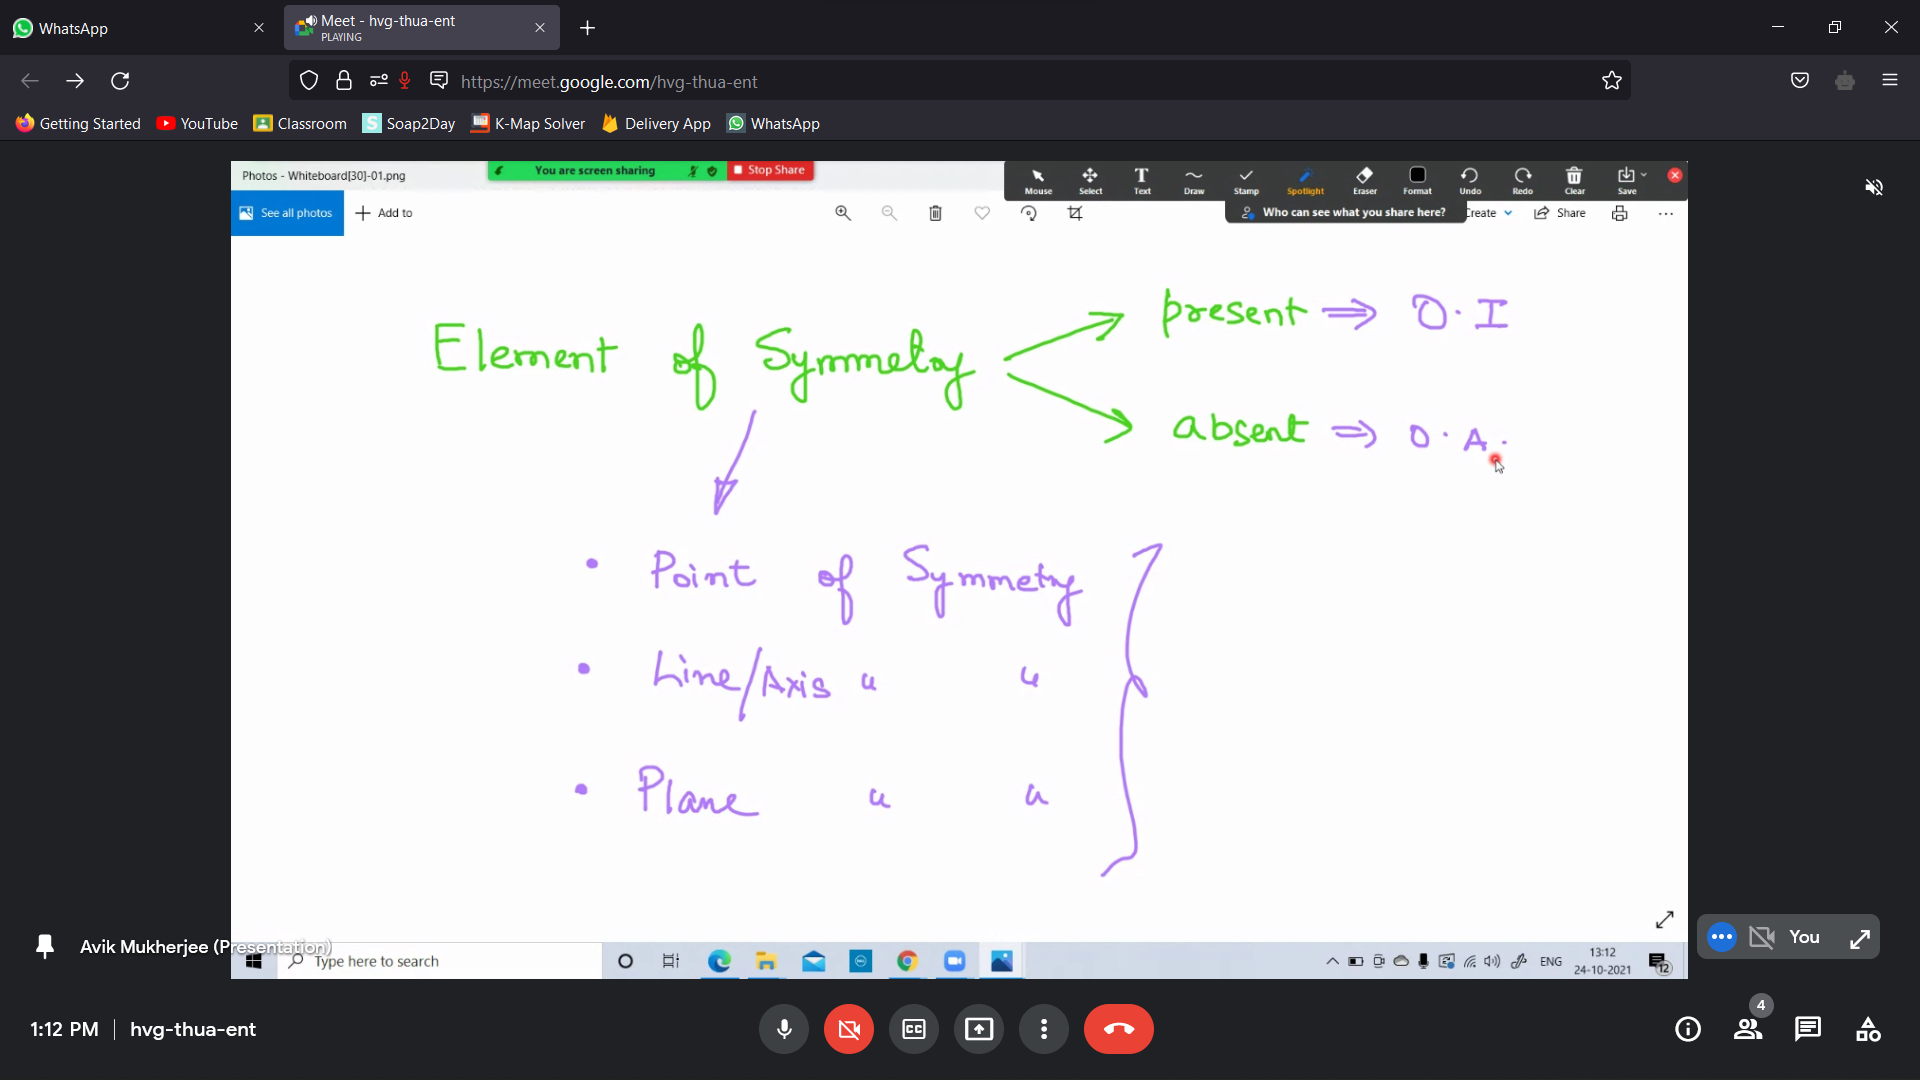 WhatsApp
Meet - hvg-thua-ent
PLAYING
https://meet.google.com/hvg-thua-ent
Getting Started YouTube Classroom Soap2Day K-Map Solver Delivery App WhatsApp
Photos - Whiteboard[30]-01.png
You are screen sharing Stop Share
Mouse Select Text Draw Stamp Spotlight Eraser Format Undo Redo Clear Save
See all photos Add to
Who can see what you share here? Create Share
Element of Symmetry
present ⇒ O.I
absent ⇒ O.A.
• Point of Symmetry
• Line/Axis " "
• Plane " "
Avik Mukherjee (Presentation)
You
Type here to search
ENG
13:12
24-10-2021
12
1:12 PM | hvg-thua-ent
CC
4